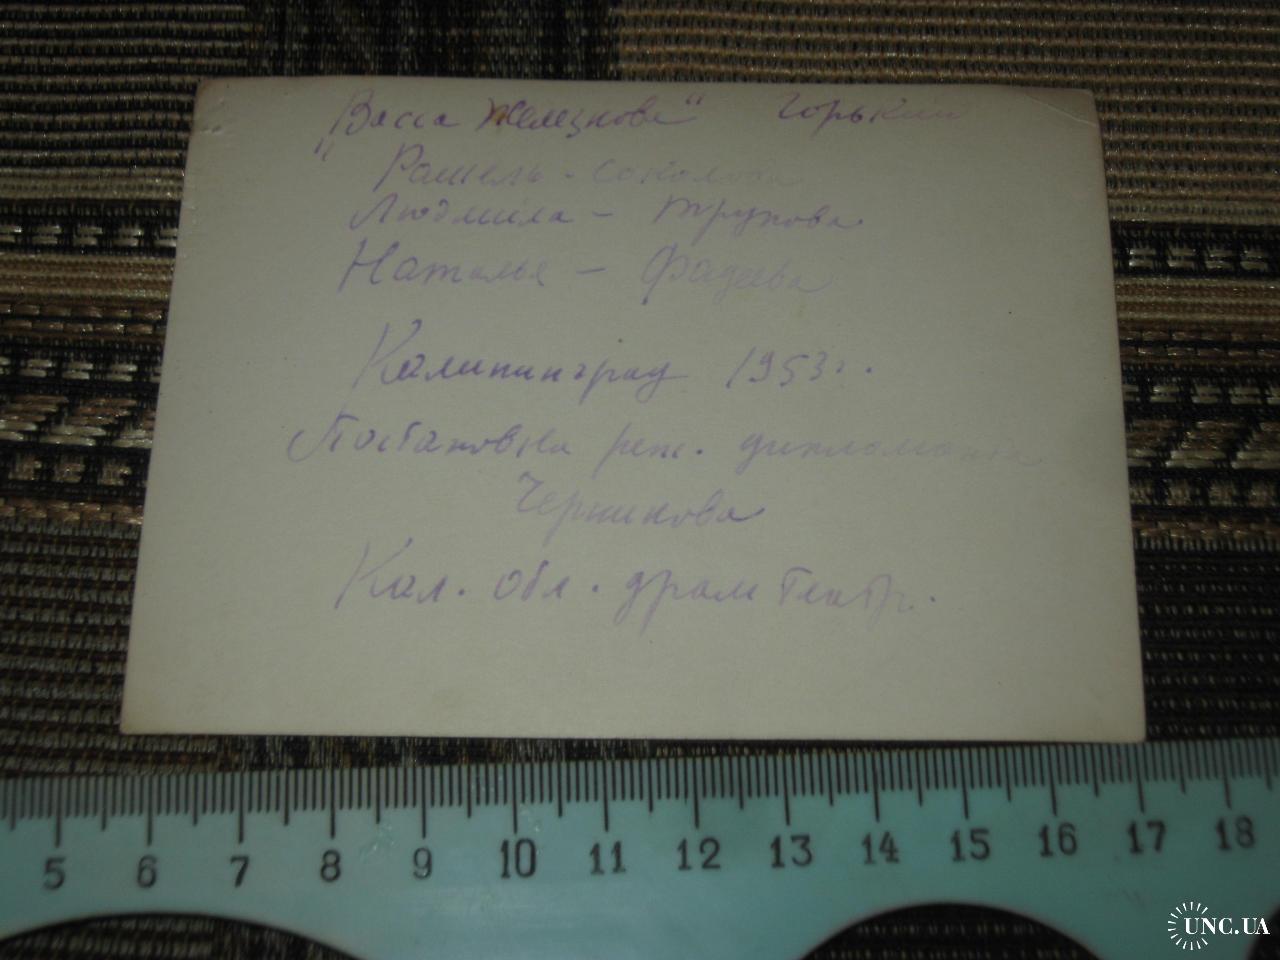 „Васса Железнова“ Горький
Рашель - Соколова
Людмила - Трунова
Наталья - Фадеева
Калининград 1953 г.
Постановка реж. дипломанта
Черникова
Кал. обл. драмтеатр.
5 6 7 8 9 10 11 12 13 14 15 16 17 18
UNC.UA